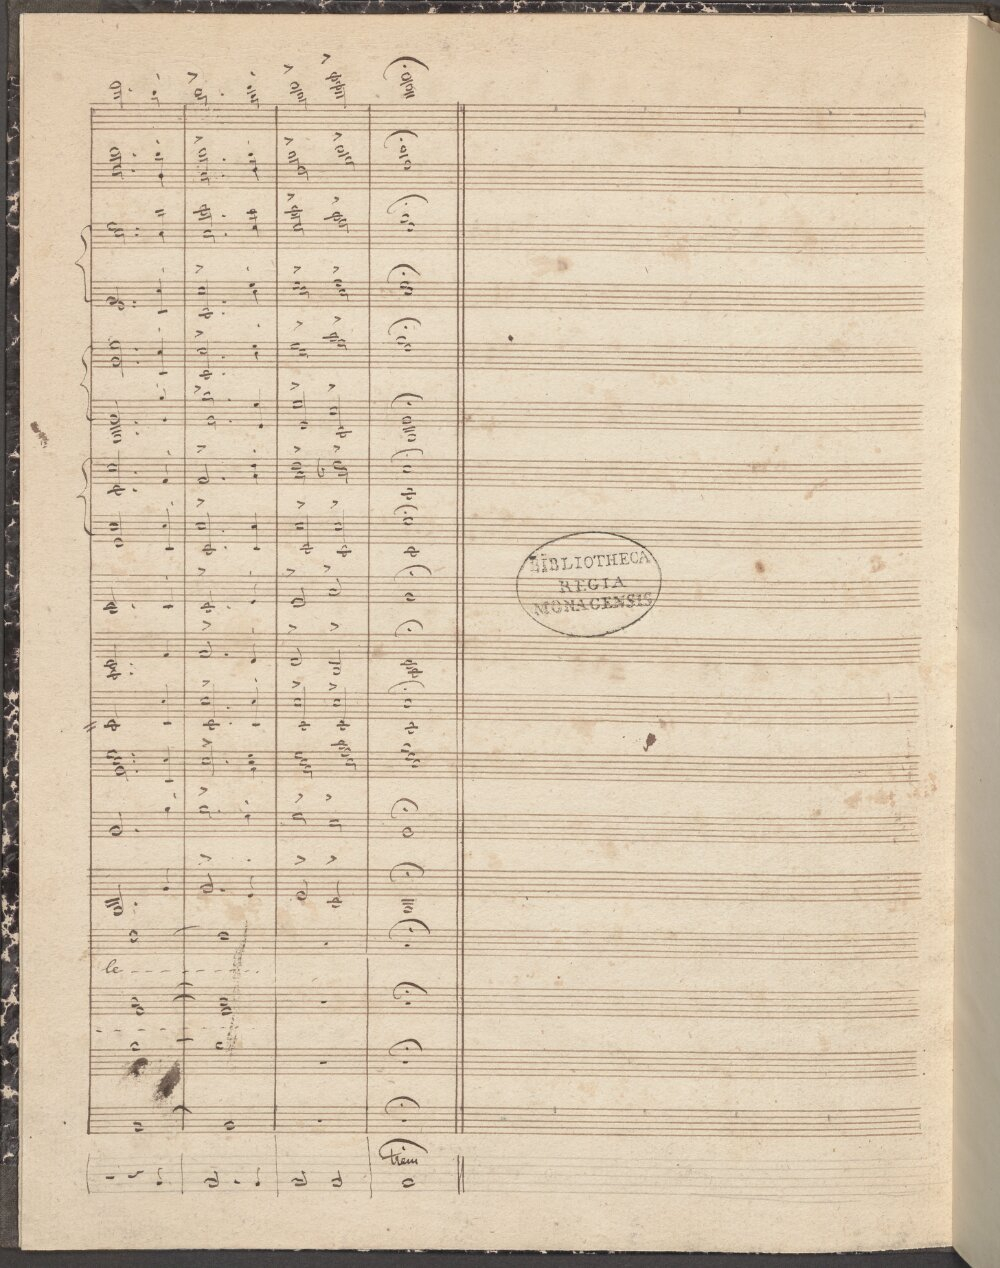 le
BIBLIOTHECA
REGIA
MONACENSIS
trem